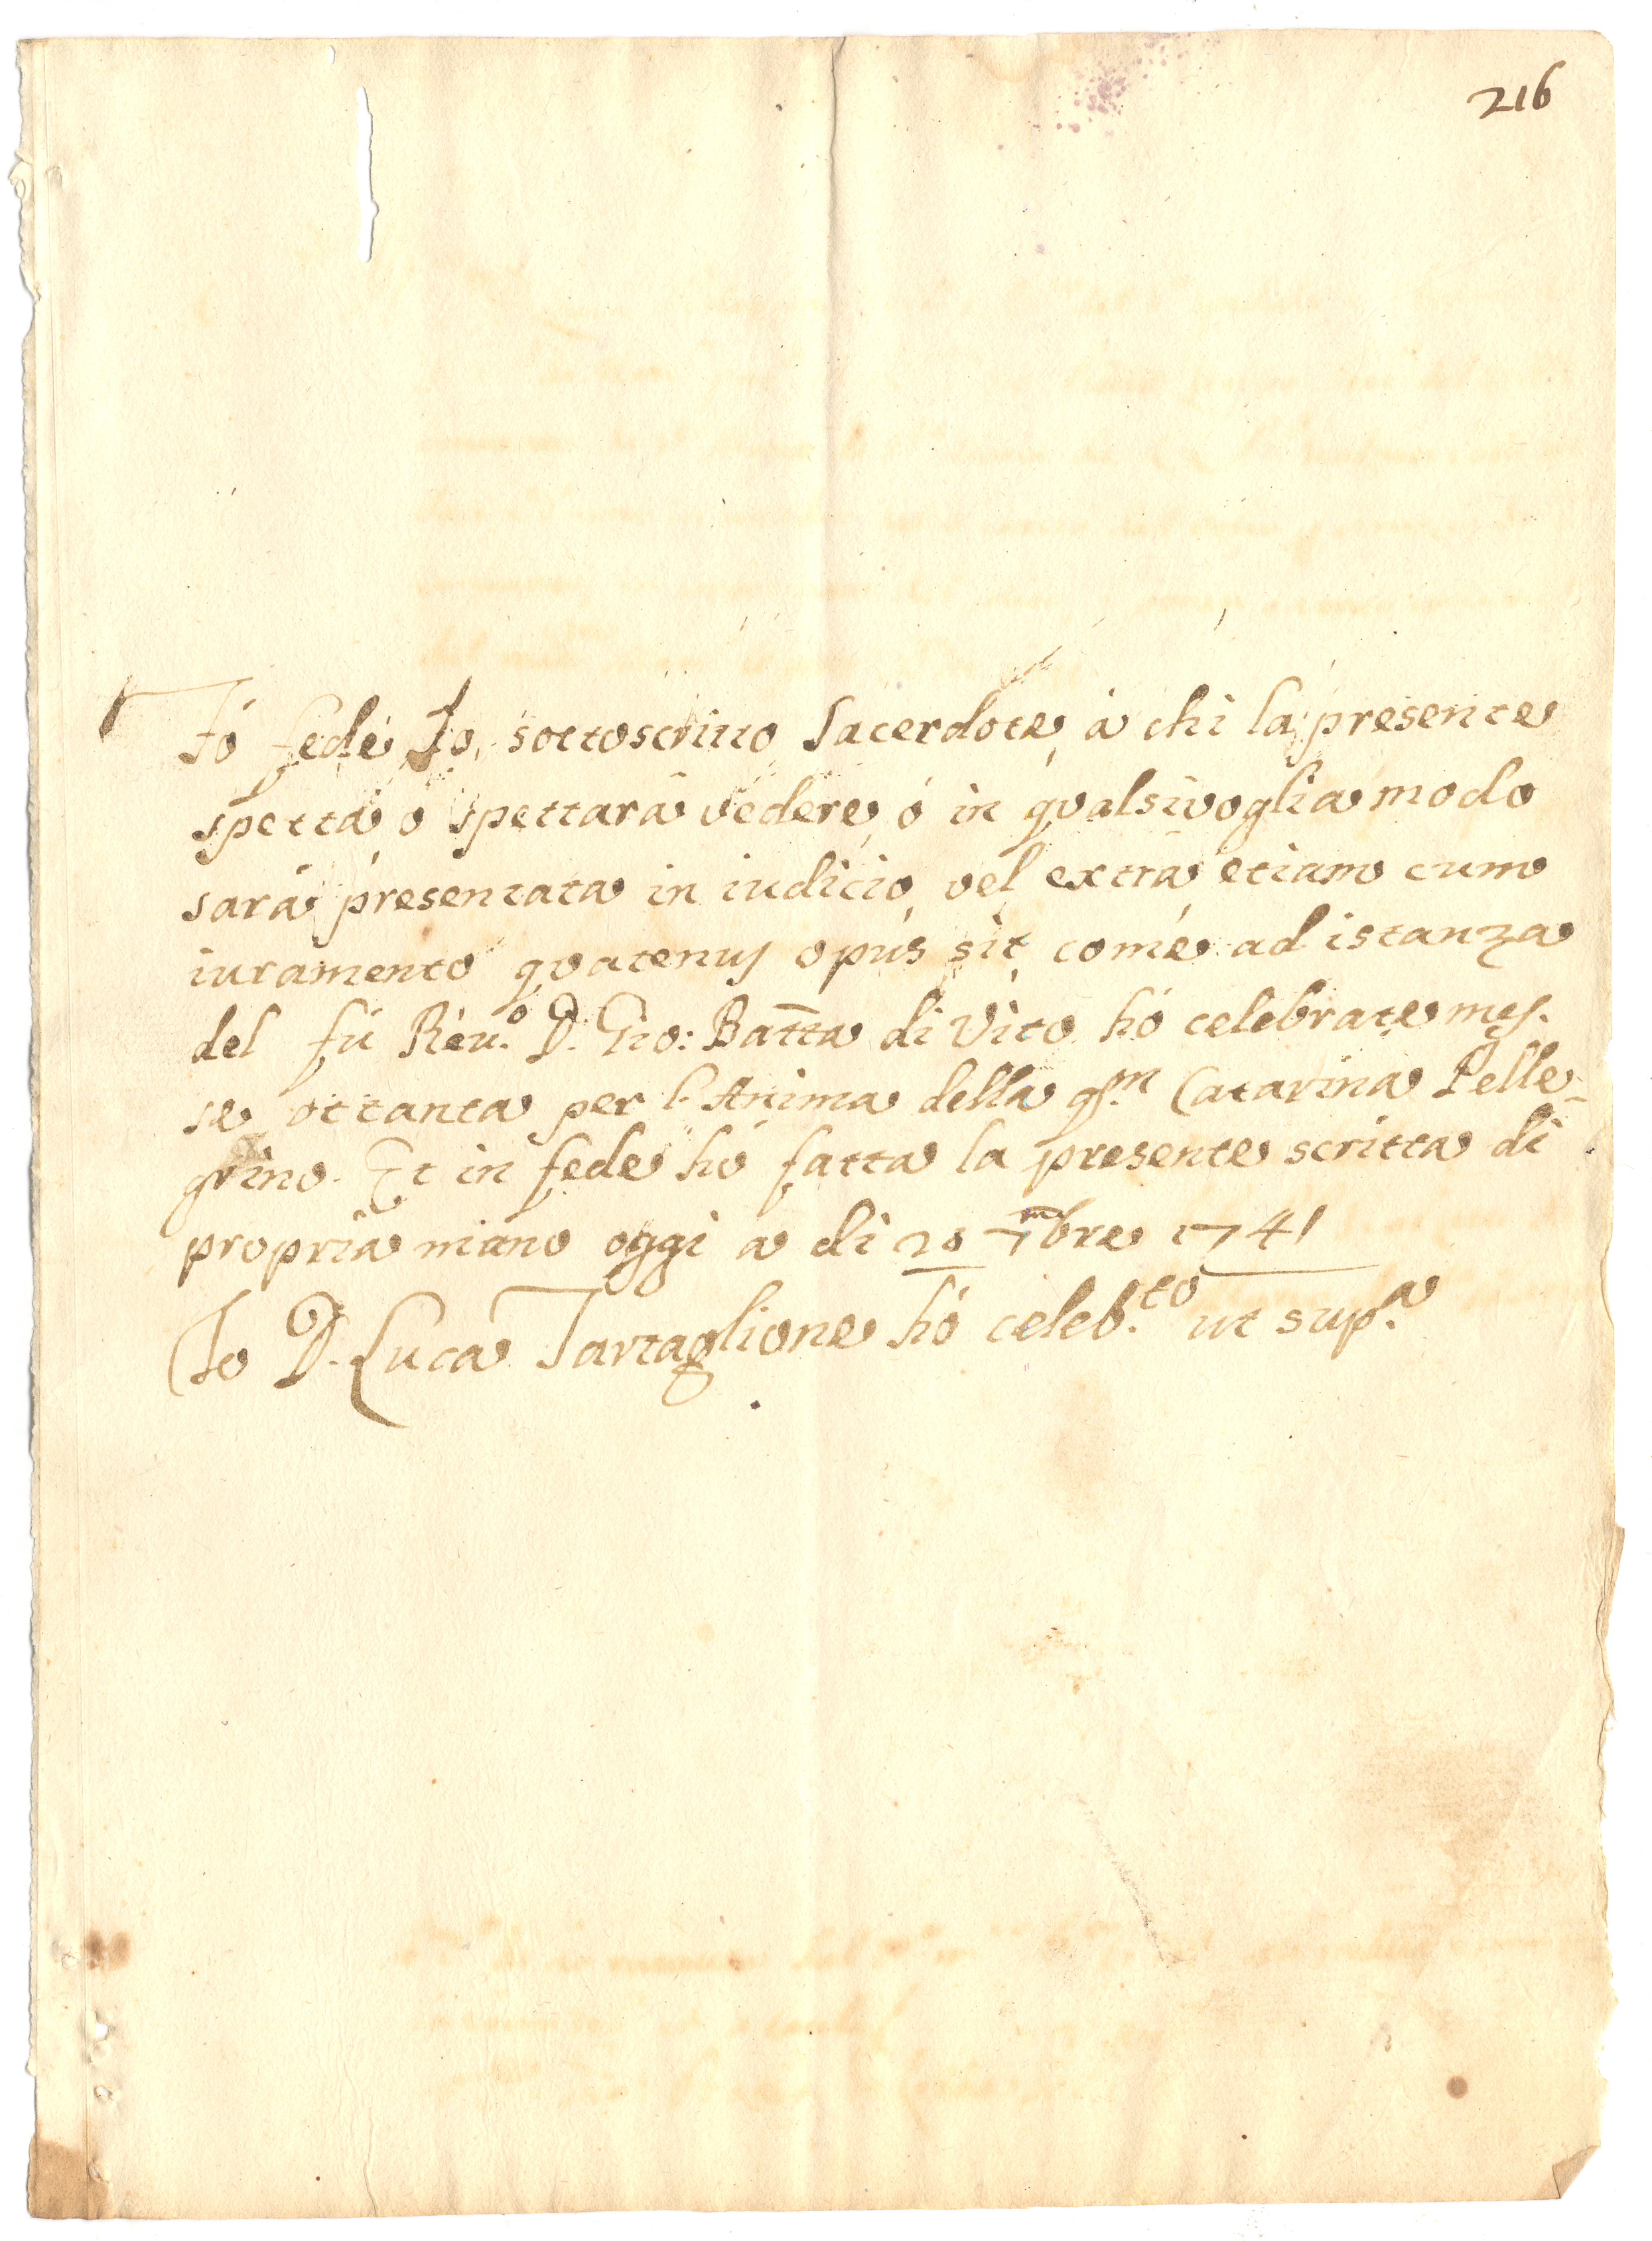 216
Fó fede Io sottoscritto Sacerdote à chi la presente
spetta ò spettarà vedere ò in qualsivoglia modo
sarà presentata in iudicio vel extra etiam cum
iuramento quatenus opùs sit come ad istanza
del fù Reu.º D. Gio: Batta di Vito hò celebrate mes.
se ottanta per l'Anima della qm Catarina Pelle-
grino. Et in fede hò fatta la presente scritta di
propria mano oggi a di 20 7mbre 1741
Io D. Luca Tartaglione hò celeb.to ut sup.a